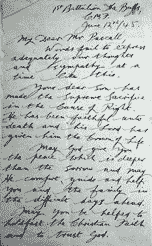 1st Battalion The Buffs,
C.M.F.
June 12th/45.
My Dear Mr Pascall,
Words fail to express
adequately our thoughts
and sympathy at a
time like this.
Your dear Son has
made the Supreme Sacrifice
in the Cause of Right.
He has been faithful unto
death and his Lord has
given him the Crown of Life
May God give you
the peace which is deeper
than the sorrow and may
He comfort, guide and help
you and the family in
the difficult days ahead.
May you be helped to
the Christian Faith
and to trust God.